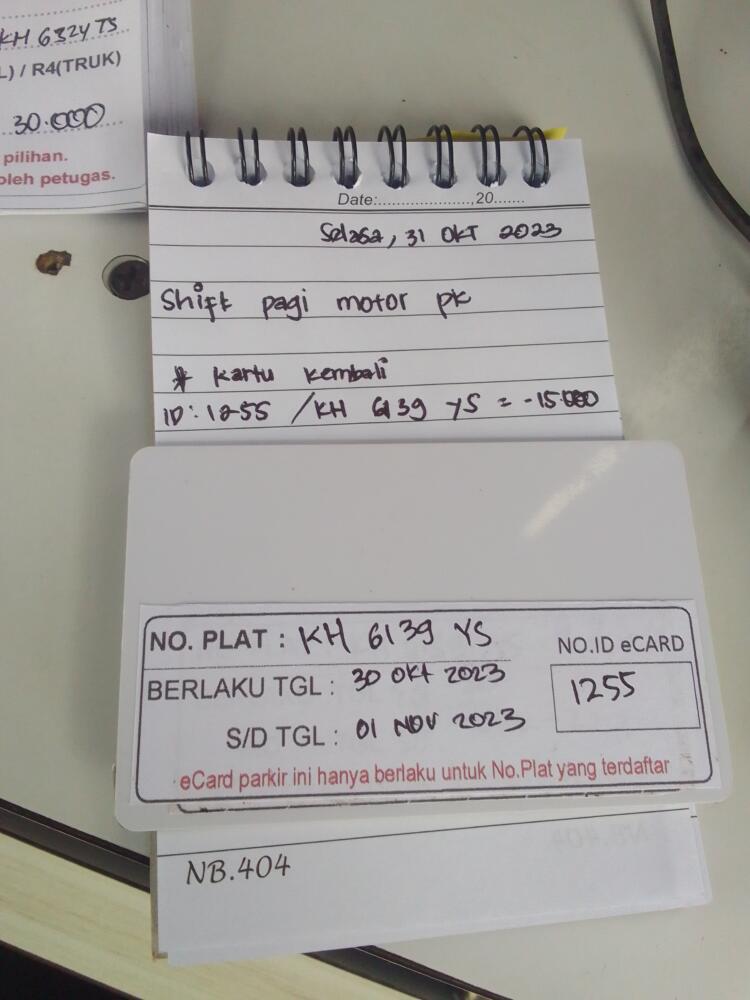 KH 6324 TS
L) / R4(TRUK)
30.000
pilihan.
oleh petugas.
Date:....................,20.......
Selasa, 31 OKT 2023
Shift pagi motor pk
* Kartu Kembali
ID: 1255 / KH 6139 YS = -15.000
NO. PLAT : KH 6139 YS
NO.ID eCARD
BERLAKU TGL : 30 OKT 2023
1255
S/D TGL : 01 NOV 2023
eCard parkir ini hanya berlaku untuk No.Plat yang terdaftar
NB.404